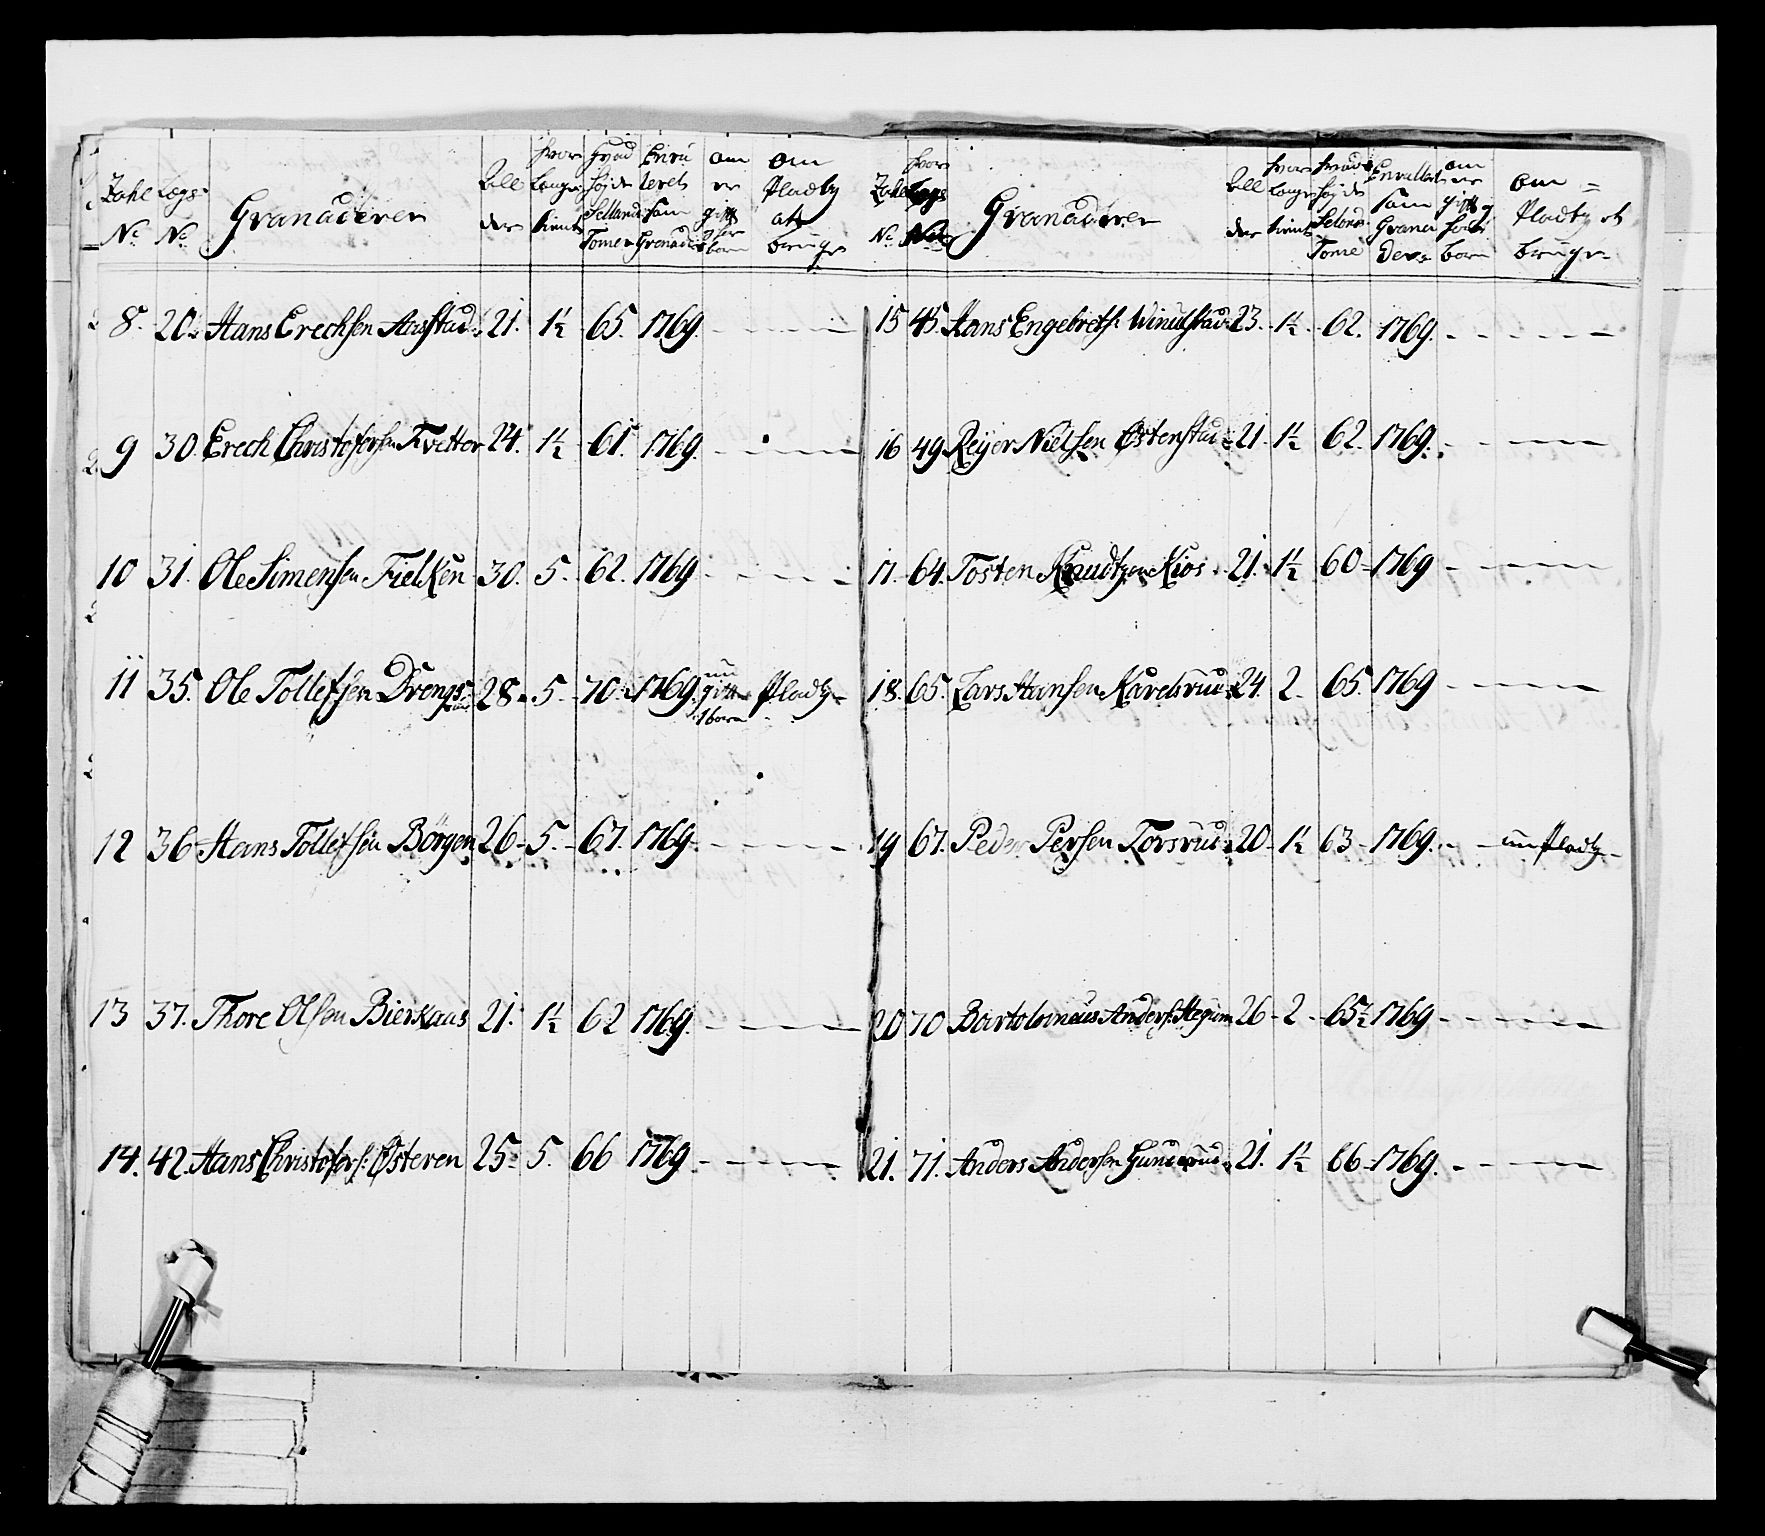 Zahl N:o Legs N:o Granaderer Alder hvor Lange tient Hvad højde Selland: Tomer Enru leret som Grenader om er gift og har born om Pladtz at bruge
8. 20. Hans Erechsen Aasstad 21. 1½ 65. 1769. - - - -
9 30. Erech Christofersen Tvetter 24. 1½ 61. 1769. - - - -
10 31. Ole Simensen Fielken 30. 5. 62. 1769 - - - -
11 35. Ole Tollefsen Drengs- 28. 5. 70. 1769. gift 1 born Pladtz -
12 36 Hans Tollefsen Börgen 26 - 5. - 67. 1769 - - - -
13 37. Thore Olsen Bierkaas 21. 1½ 62 1769. - - - -
14. 42. Hans Christofers: Østeren 25. 5. 66 1769 - - - -
Zahl N:o Legs Granaderer Alder hvor Lange tient hvad højde Tome Enrullert som Grana der: om er gift og har born om Pladtz at bruge
15 45. Hans Engebrets: Windstad 23. 1½ 62. 1769. - - - -
16 49. Reyer Nielsen Østenstad 21. 1½ 62. 1769. - - - -
17. 64. Tosten Knudtzen Kios 21. 1½ 60 - 1769 - - - -
18. 65. Lars Hansen Karelsrud 24. 2. 65. 1769 - - - -
19 67. Peder Persen Torsrud 20 - 1½ 63 - 1769. - - Pladtz -
20 70 Bartolomeus Anders: Hegum 26 - 2 - 65½ 1769 - - - -
21. 71. Anders Andersen Gunerud 21. 1½ 66 - 1769. - - - -